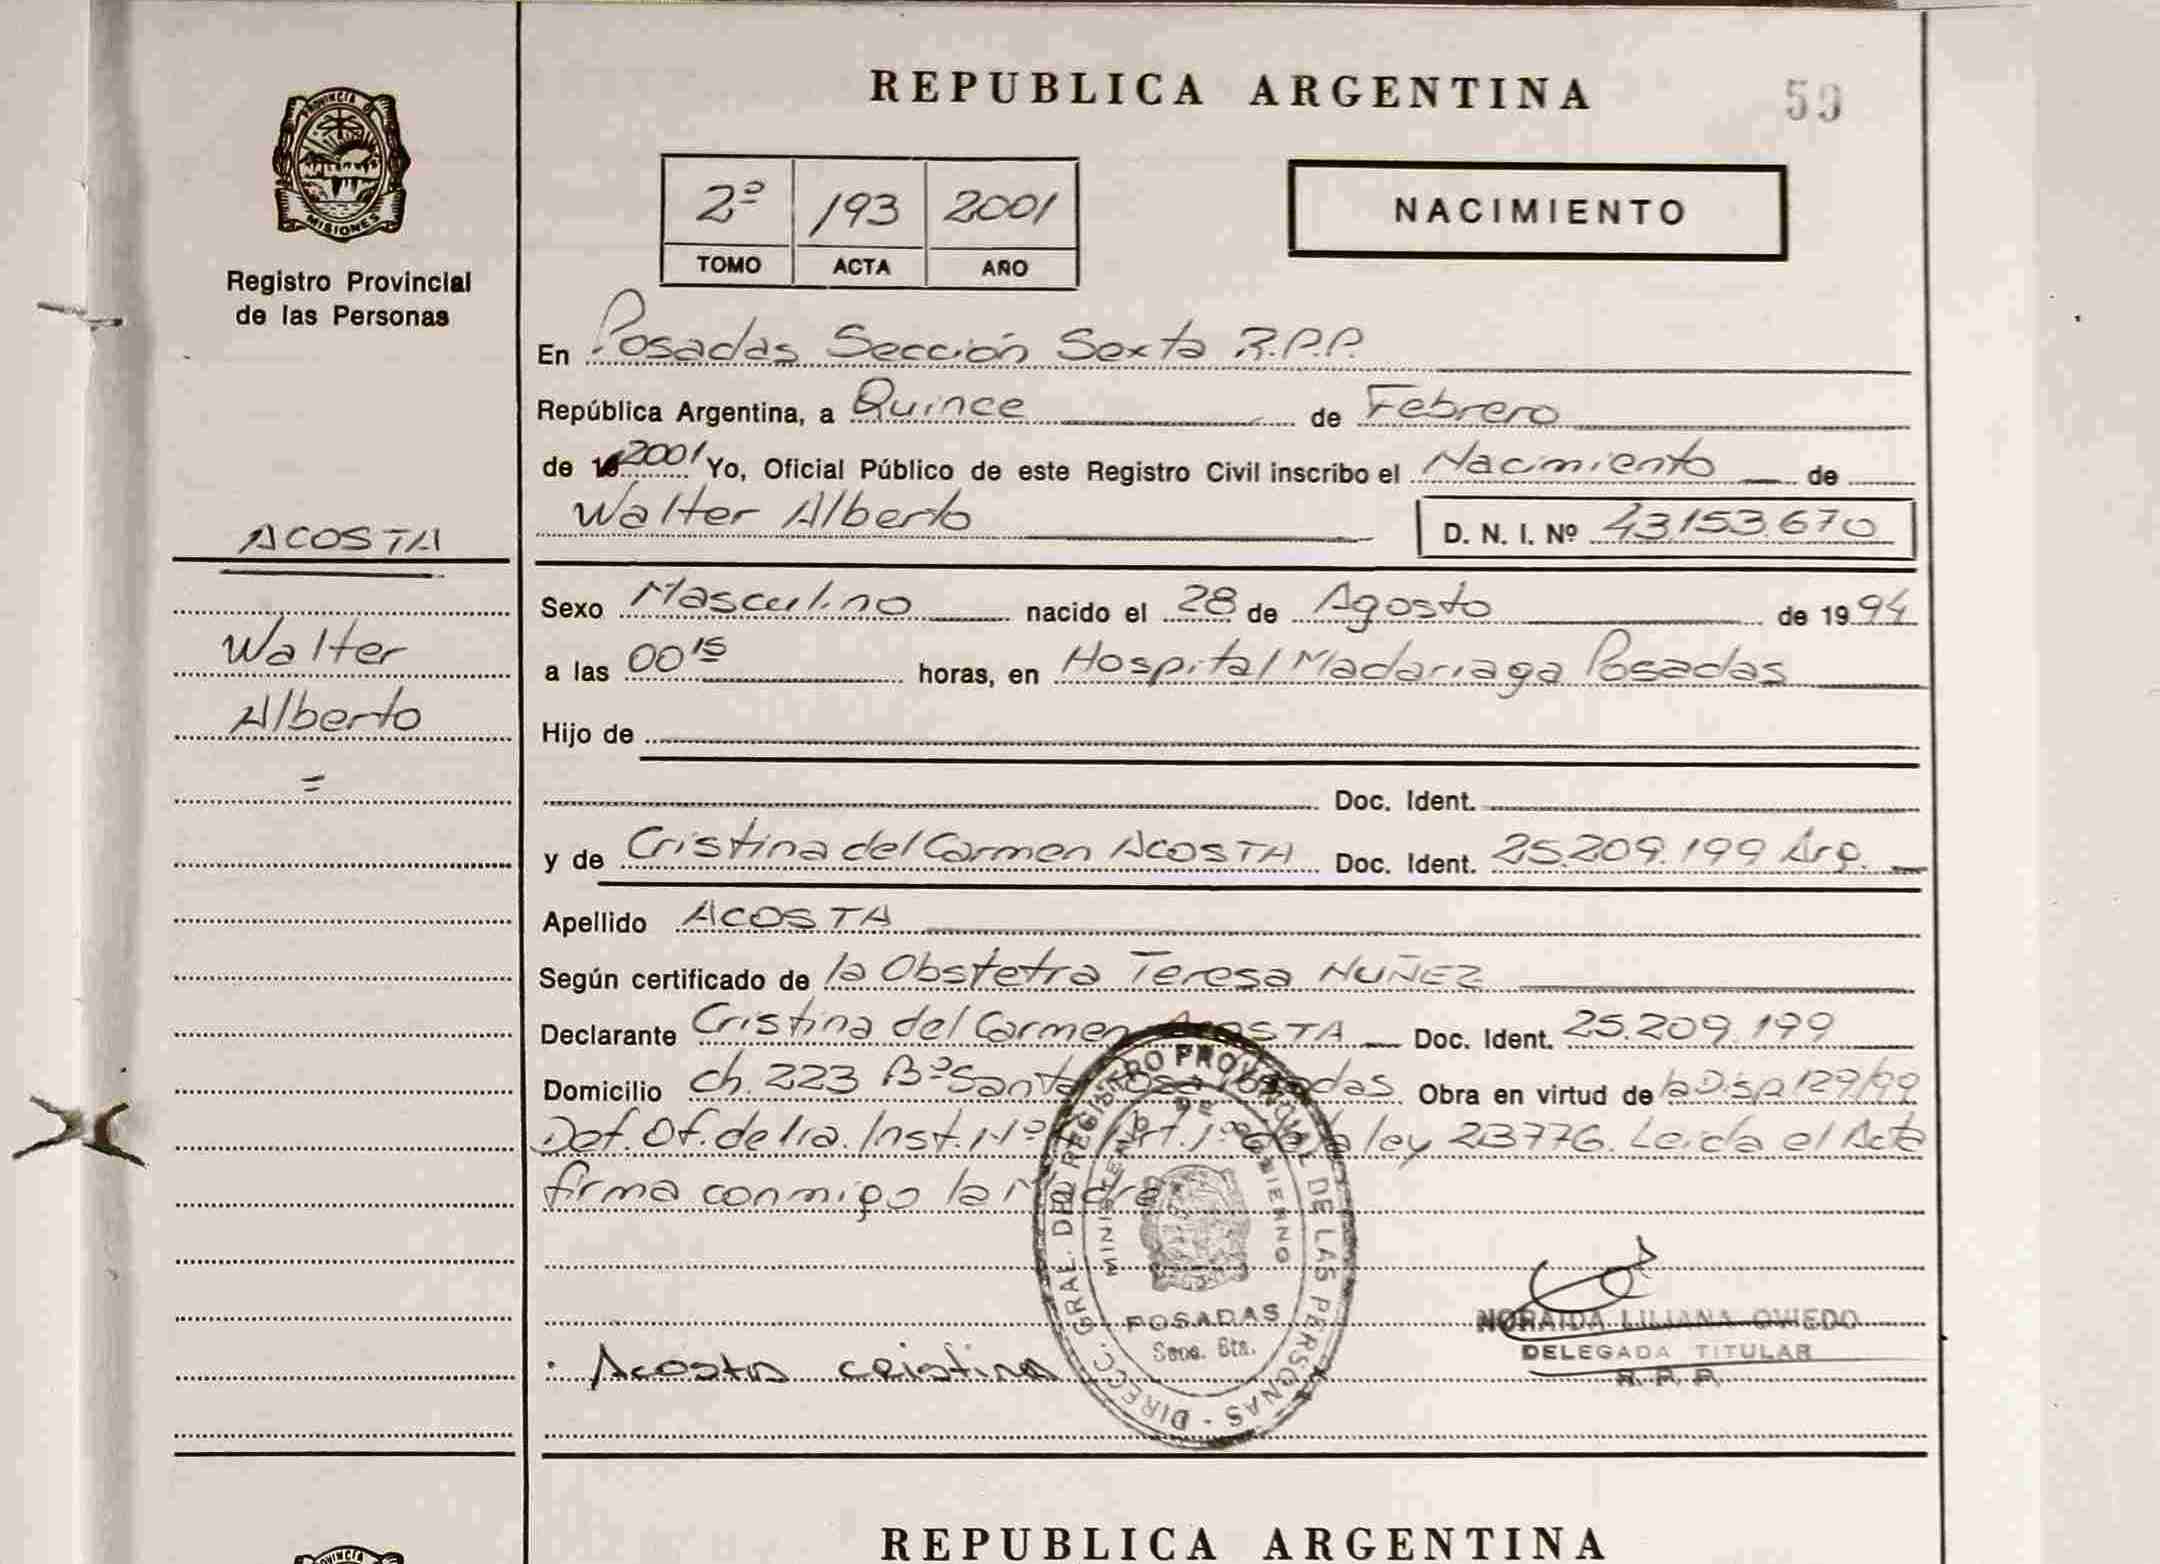 REPUBLICA ARGENTINA
59
PROVINCIA DE
MISIONES
Registro Provincial
de las Personas
2º 193 2001
TOMO ACTA AÑO
NACIMIENTO
En Posadas Sección Sexta R.P.P.
República Argentina, a Quince de Febrero
de 2001 Yo, Oficial Público de este Registro Civil inscribo el Nacimiento de
Walter Alberto D. N. I. Nº 43.153.670
ACOSTA
Walter
Alberto
Sexo Masculino nacido el 28 de Agosto de 1994
a las 00 15 horas, en Hospital Madariaga Posadas
Hijo de
Doc. Ident.
y de Cristina del Carmen ACOSTA Doc. Ident. 25.209.199 Arg.
Apellido ACOSTA
Según certificado de la Obstetra Teresa NUÑEZ
Declarante Cristina del Carmen ACOSTA Doc. Ident. 25.209.199
Domicilio ch. 223 Bº Santa Rosa Posadas. Obra en virtud de la Disp 129/99
Def. Of. de 1ra. Inst. Nº Art. 1º de la ley 23776. Leída el Acta
firma conmigo la Madre
DIRECC. GRAL. DEL REGISTRO PROVINCIAL DE LAS PERSONAS
MINISTERIO DE GOBIERNO
POSADAS
Secc. 6ta.
Acosta cristina
NORAIDA LILIANA OVIEDO
DELEGADA TITULAR
R. P. P.
REPUBLICA ARGENTINA
PROVINCIA